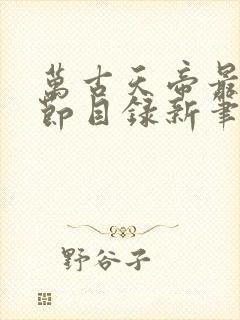 萬古天帝最
節目錄新筆
野谷子